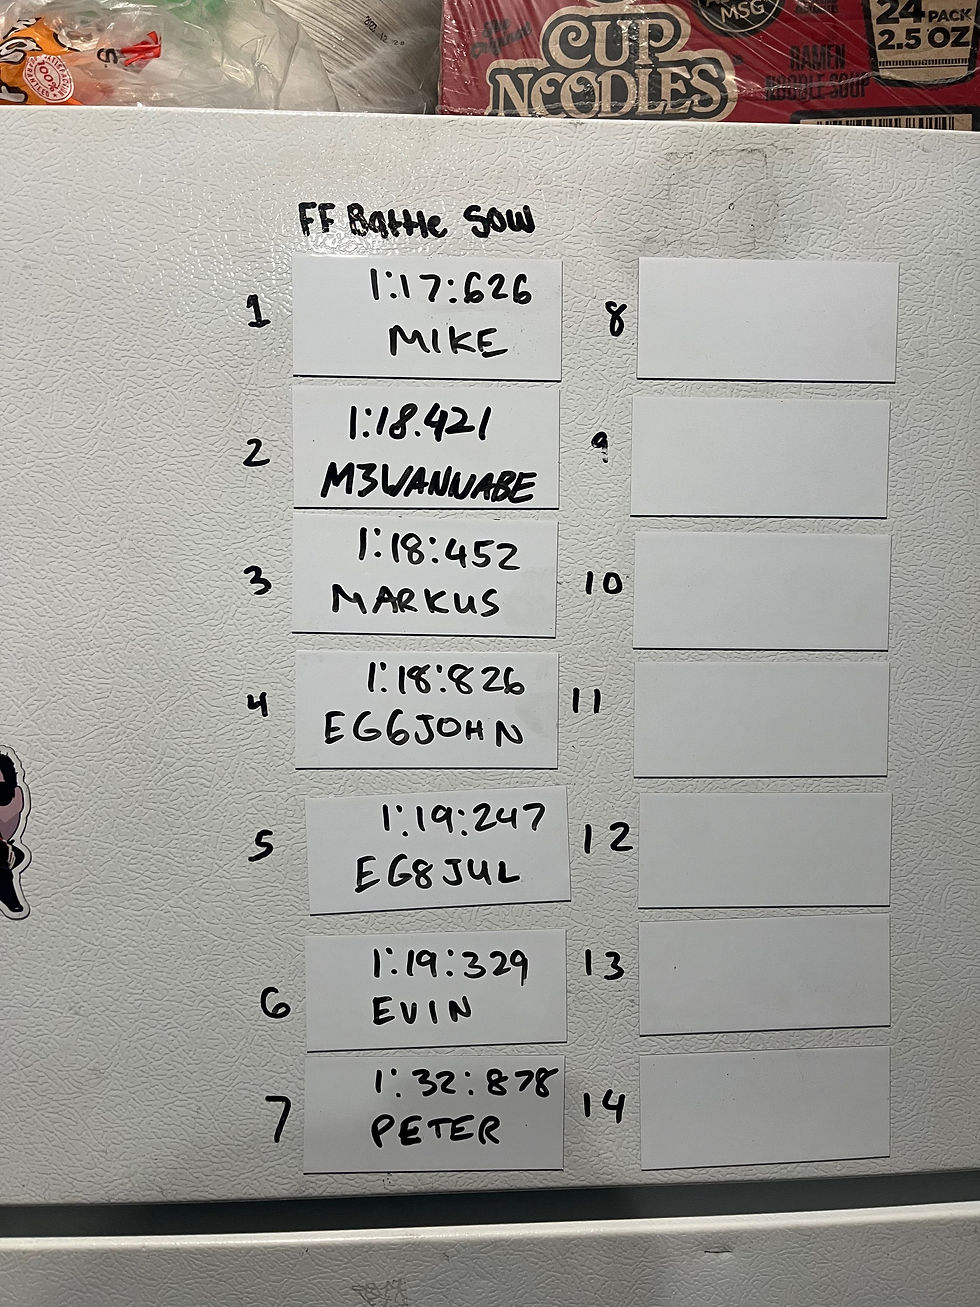 The Original
CUP
NOODLES
MSG
RAMEN
NOODLE SOUP
24 PACK
2.5 OZ
100%
FF Battle Sow
1
1:17:626
MIKE
2
1:18.421
M3WANNABE
3
1:18:452
MARKUS
4
1:18:826
EG6JOHN
5
1:19:247
EG8JUL
6
1:19:329
EVIN
7
1:32:878
PETER
8
9
10
11
12
13
14